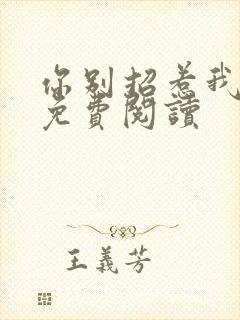 你别招惹我
免費閱讀
王義芳